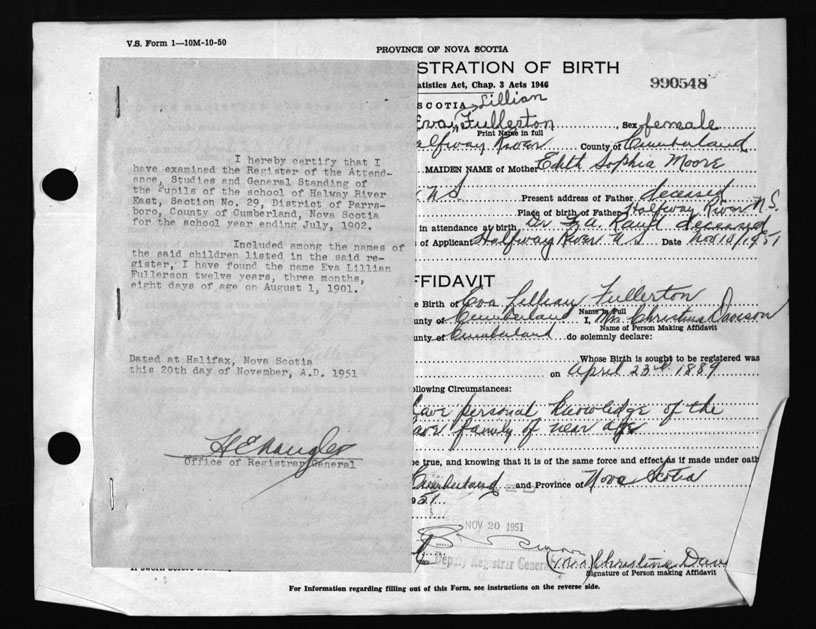 V.S. Form 1—10M-10-50
PROVINCE OF NOVA SCOTIA
STRATION OF BIRTH
tatistics Act, Chap. 3 Acts 1946
990548
SCOTIA Lillian
Eva Fullerton Sex female
Print Name in full
Halfway River County of Cumberland
MAIDEN NAME of Mother Edith Sophia Moore
N S Present address of Father deceased
Place of birth of Father Halfway River N.S.
in attendance at birth Dr deceased
s of Applicant Halfway River N S Date Nov 10/1951
I hereby certify that I
have examined the Register of the Attend-
ance, Studies and General Standing of
the Pupils of the school of Halway River
East, Section No. 29, District of Parrs-
boro, County of Cumberland, Nova Scotia
for the school year ending July, 1902.
Included among the names of
the said children listed in the said re-
gister, I have found the name Eva Lillian
Fullerson twelve years, three months,
eight days of age on August 1, 1901.
Dated at Halifax, Nova Scotia
this 20th day of November, A.D. 1951
Office of Registrar General
FFIDAVIT
e Birth of Eva Lillian Fullerton
Name in Full
ounty of Cumberland I, Mrs Christina Davison
Name of Person Making Affidavit
ounty of Cumberland do solemnly declare:
Whose Birth is sought to be registered was
on April 23rd 1889
ollowing Circumstances:
have personal knowledge of the
family of near age
be true, and knowing that it is of the same force and effect as if made under oath
Cumberland and Province of Nova Scotia
951
NOV 20 1951
Deputy Registrar General
(Mrs) Christina Davis
Signature of Person making Affidavit
For Information regarding filling out of this Form, see instructions on the reverse side.